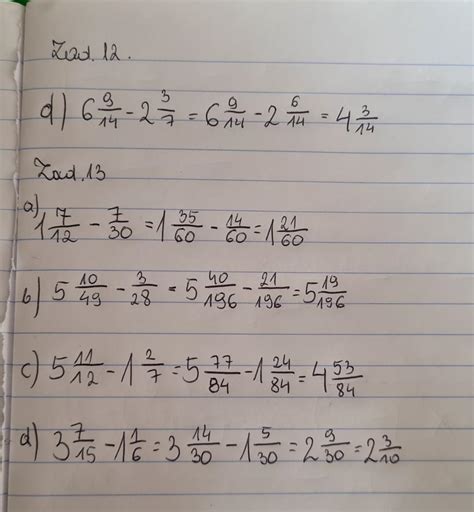 Zad. 12.
d) 6 9/14 - 2 3/7 = 6 9/14 - 2 6/14 = 4 3/14
Zad. 13
a) 1 7/12 - 7/30 = 1 35/60 - 14/60 = 1 21/60
b) 5 10/49 - 3/28 = 5 40/196 - 21/196 = 5 19/196
c) 5 11/12 - 1 2/7 = 5 77/84 - 1 24/84 = 4 53/84
d) 3 7/15 - 1 1/6 = 3 14/30 - 1 5/30 = 2 9/30 = 2 3/10